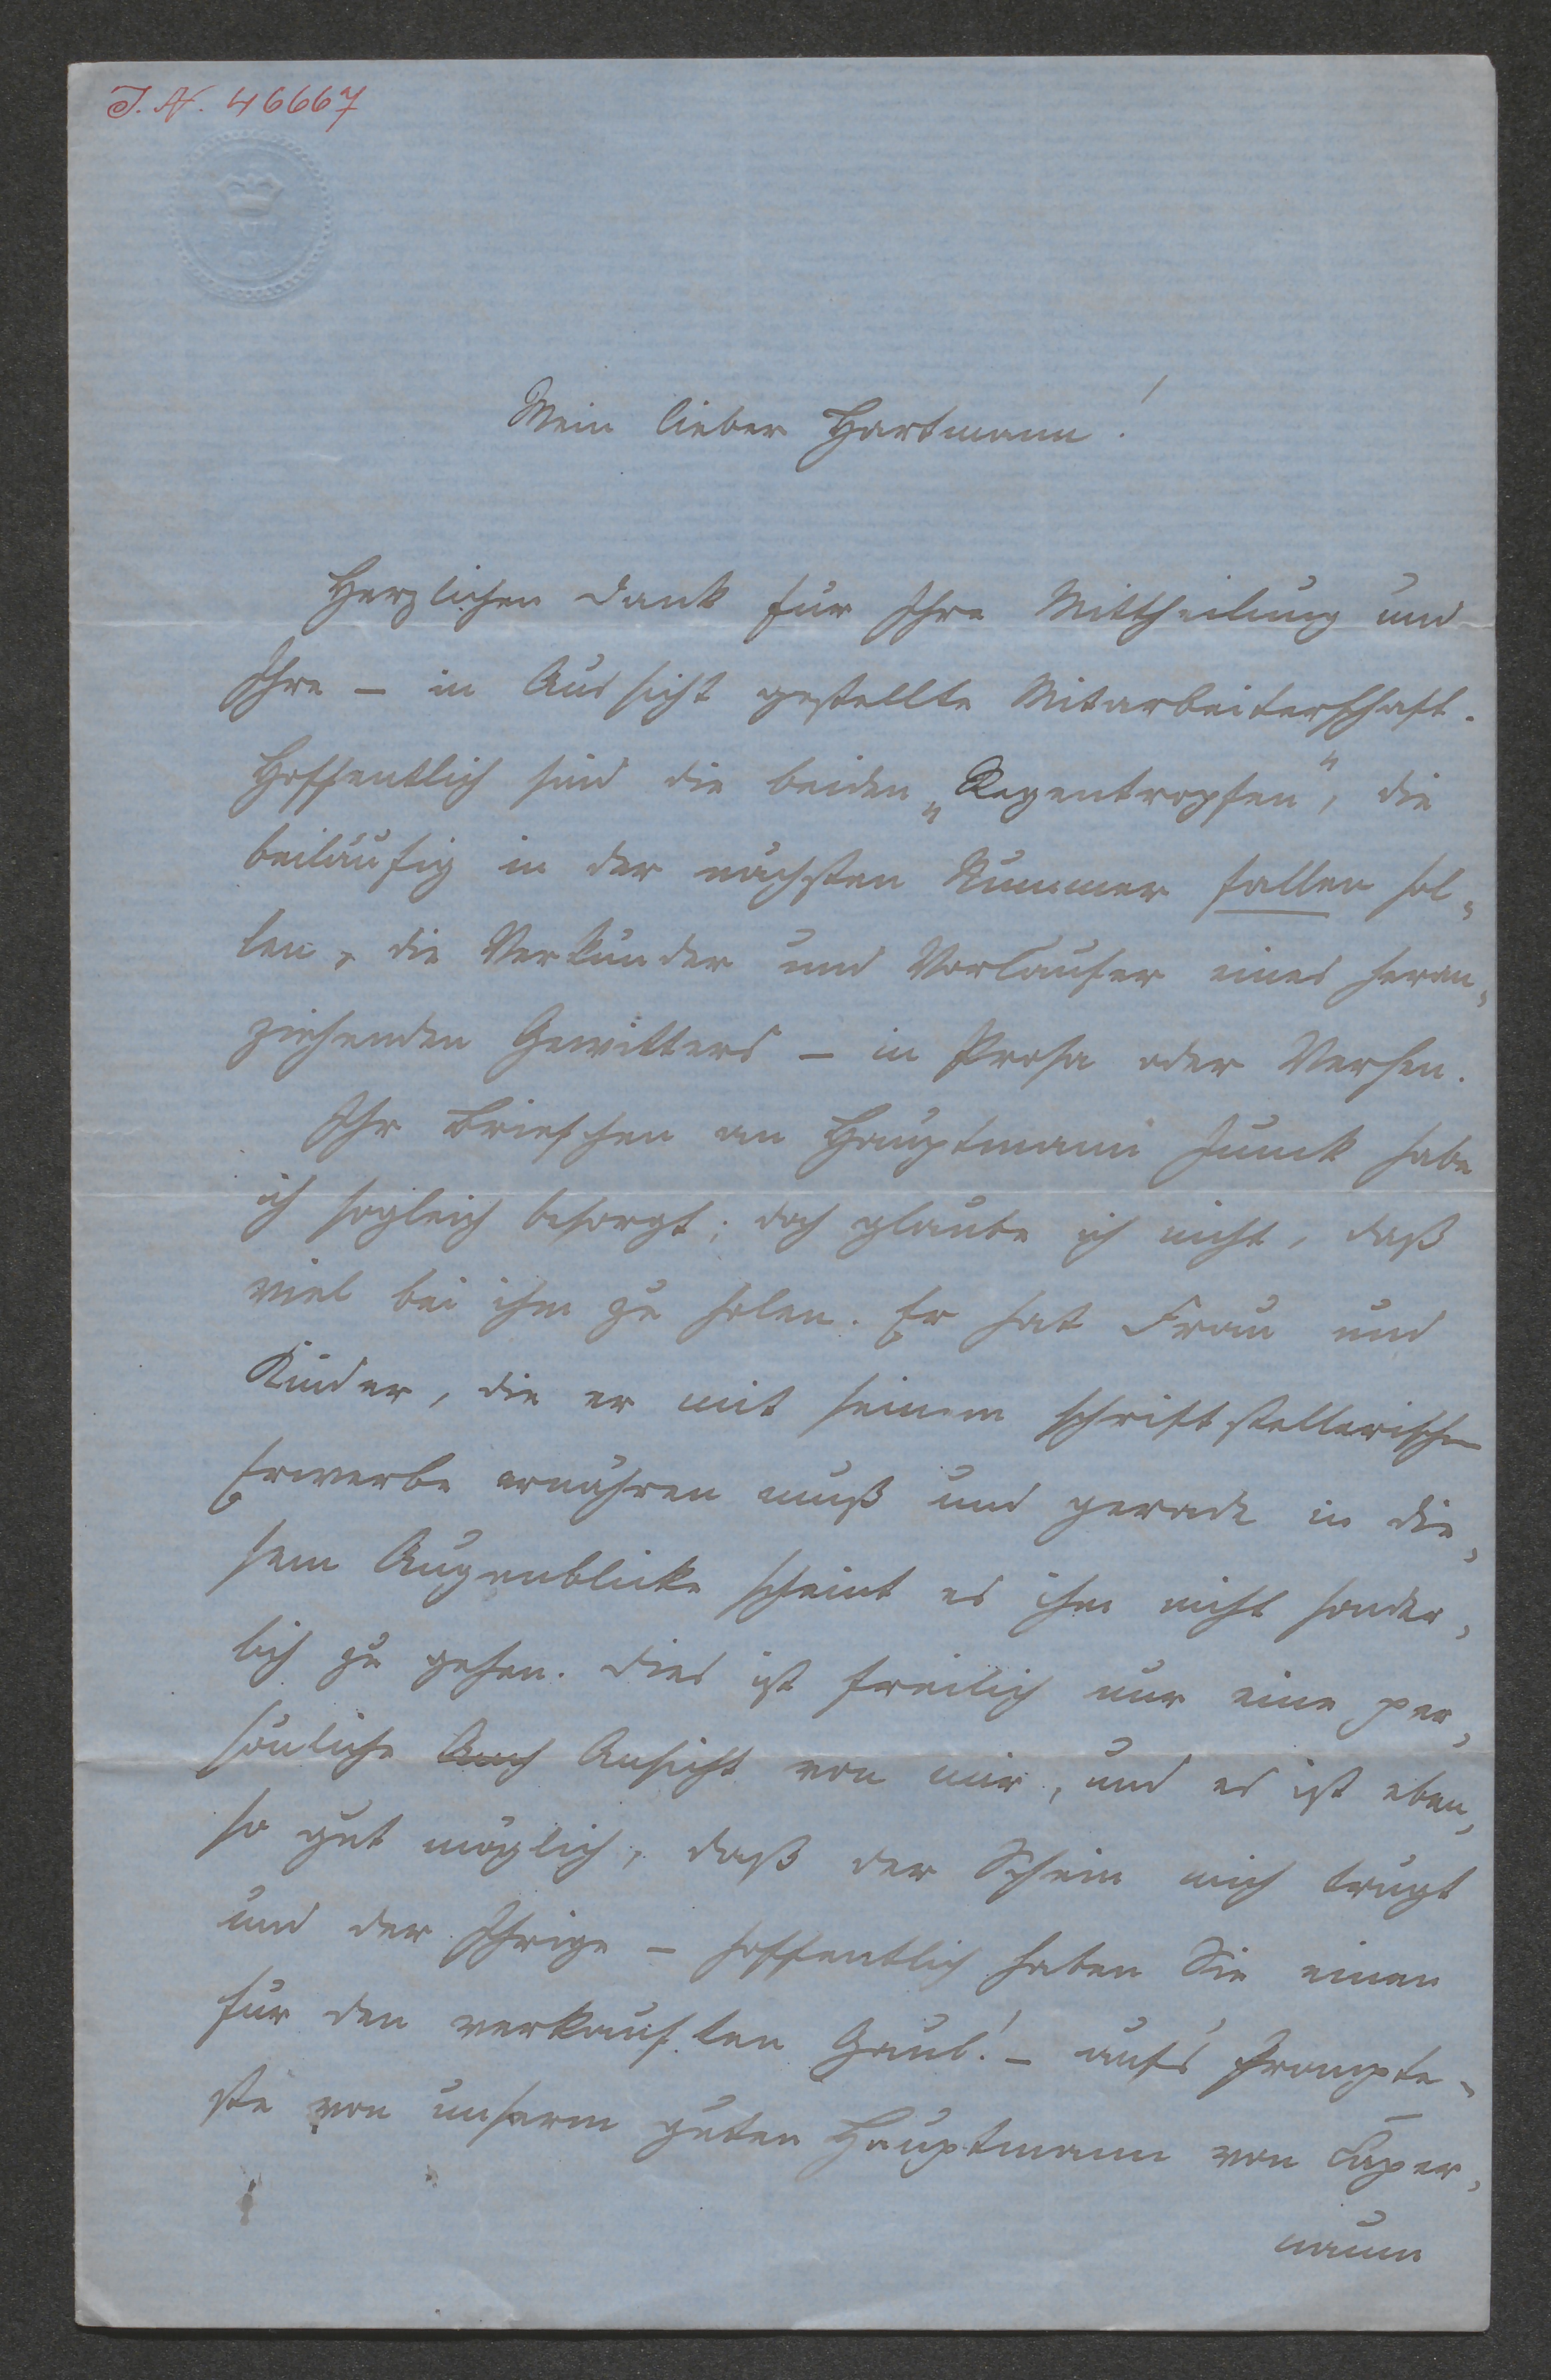 I. N. 46667
Mein lieber Hartmann!
Herzlichen Dank für Ihre Mittheilung und
Ihre – in Aussicht gestellte Mitarbeiterschaft.
Hoffentlich sind die beiden „Regentropfen“, die
beiläufig in der nächsten Nummer fallen sol-
len, die Verkünder und Vorläufer eines heran-
ziehenden Gewitters – in Prosa oder Versen.
Ihr Briefchen an Hauptmann Junck habe
ich sogleich besorgt; doch glaube ich nicht, daß
viel bei ihm zu holen. Er hat Frau und
Kinder, die er mit seinem schriftstellerischen
Erwerbe ernähren muß und gerade in die-
sem Augenblicke scheint es ihm nicht sonder-
lich zu gehen. Dies ist freilich nur eine per-
sönliche Auch Ansicht von mir, und es ist eben-
so gut möglich, daß der Schein mich trügt
und der Ihrige – hoffentlich haben Sie einen
für den verkauften Gaul! – aufs Prompte-
ste von unserm guten Hauptmann von Caper-
naum